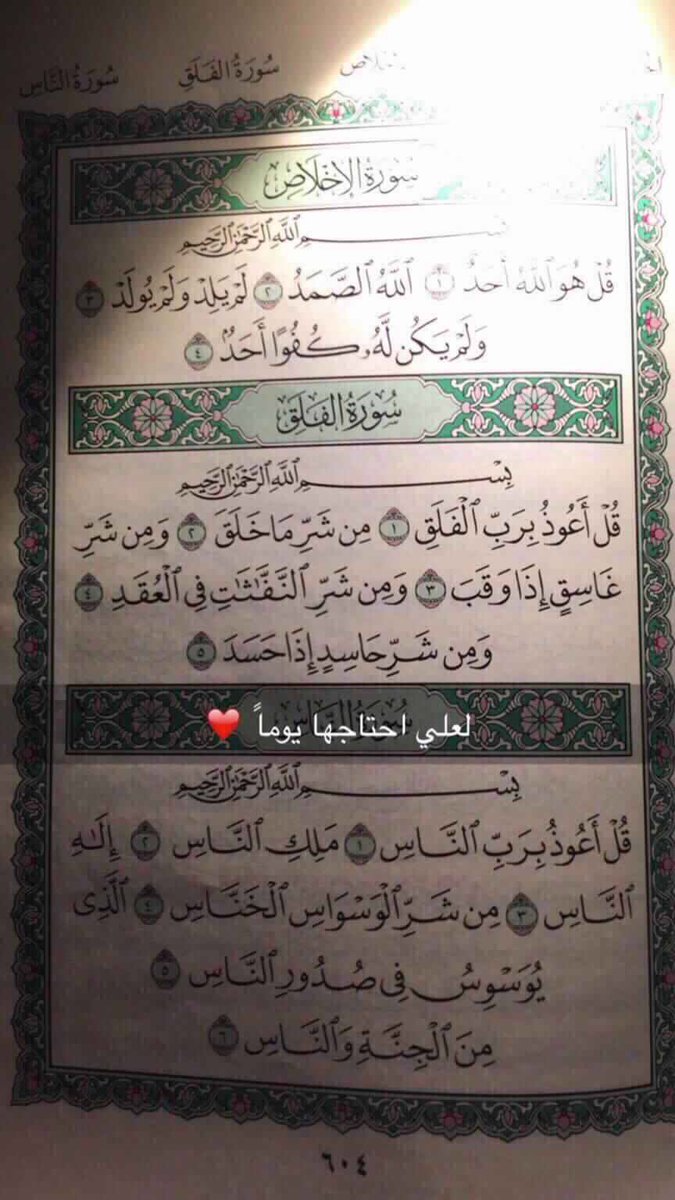 سُورَةُ الفَلَقِ سُورَةُ النَّاسِ
سُورَةُ الإِخْلَاصِ
بِسْمِ ٱللَّهِ ٱلرَّحْمَٰنِ ٱلرَّحِيمِ
قُلْ هُوَ ٱللَّهُ أَحَدٌ ١ ٱللَّهُ ٱلصَّمَدُ ٢ لَمْ يَلِدْ وَلَمْ يُولَدْ ٣
وَلَمْ يَكُن لَّهُۥ كُفُوًا أَحَدٌۢ ٤
سُورَةُ الفَلَقِ
بِسْمِ ٱللَّهِ ٱلرَّحْمَٰنِ ٱلرَّحِيمِ
قُلْ أَعُوذُ بِرَبِّ ٱلْفَلَقِ ١ مِن شَرِّ مَا خَلَقَ ٢ وَمِن شَرِّ
غَاسِقٍ إِذَا وَقَبَ ٣ وَمِن شَرِّ ٱلنَّفَّٰثَٰتِ فِى ٱلْعُقَدِ ٤
وَمِن شَرِّ حَاسِدٍ إِذَا حَسَدَ ٥
سُورَةُ النَّاسِ
لعلي احتاجها يوماً ❤️
بِسْمِ ٱللَّهِ ٱلرَّحْمَٰنِ ٱلرَّحِيمِ
قُلْ أَعُوذُ بِرَبِّ ٱلنَّاسِ ١ مَلِكِ ٱلنَّاسِ ٢ إِلَٰهِ
ٱلنَّاسِ ٣ مِن شَرِّ ٱلْوَسْوَاسِ ٱلْخَنَّاسِ ٤ ٱلَّذِى
يُوَسْوِسُ فِى صُدُورِ ٱلنَّاسِ ٥
مِنَ ٱلْجِنَّةِ وَٱلنَّاسِ ٦
٦٠٤